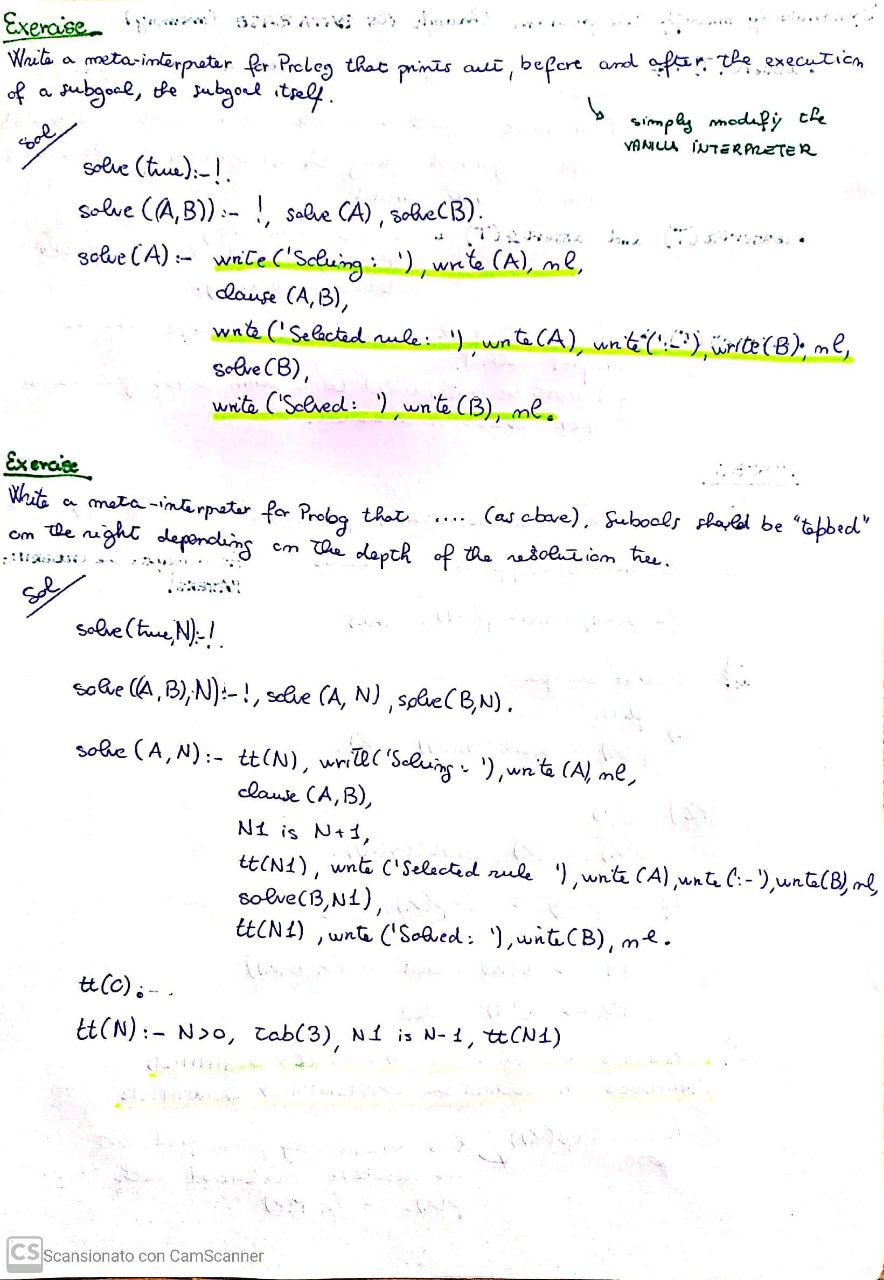 Exercise
Write a meta-interpreter for Prolog that prints out, before and after, the execution
of a subgoal, the subgoal itself.
simply modify the
VANILLA INTERPRETER
sol
solve (true):-!.
solve ((A,B)) :- !, solve (A), solve(B).
solve (A) :- write ('Solving: '), write (A), nl,
clause (A,B),
write ('Selected rule: '), write (A), write (':-'), write (B), nl,
solve (B),
write ('Solved: '), write (B), nl.
Exercise
Write a meta-interpreter for Prolog that .... (as above). Suboals should be "tabbed"
on the right depending on the depth of the resolution tree.
Sol
solve (true,N):-!.
solve ((A,B),N):-!, solve (A, N), solve (B,N).
solve (A,N) :- tt(N), write ('Solving: '), write (A), nl,
clause (A,B),
N1 is N+1,
tt(N1), write ('Selected rule '), write (A), write (':-'), write (B), nl,
solve (B,N1),
tt(N1), write ('Solved: '), write (B), nl.
tt(0):-.
tt(N) :- N>0, tab(3), N1 is N-1, tt(N1)
CS Scansionato con CamScanner